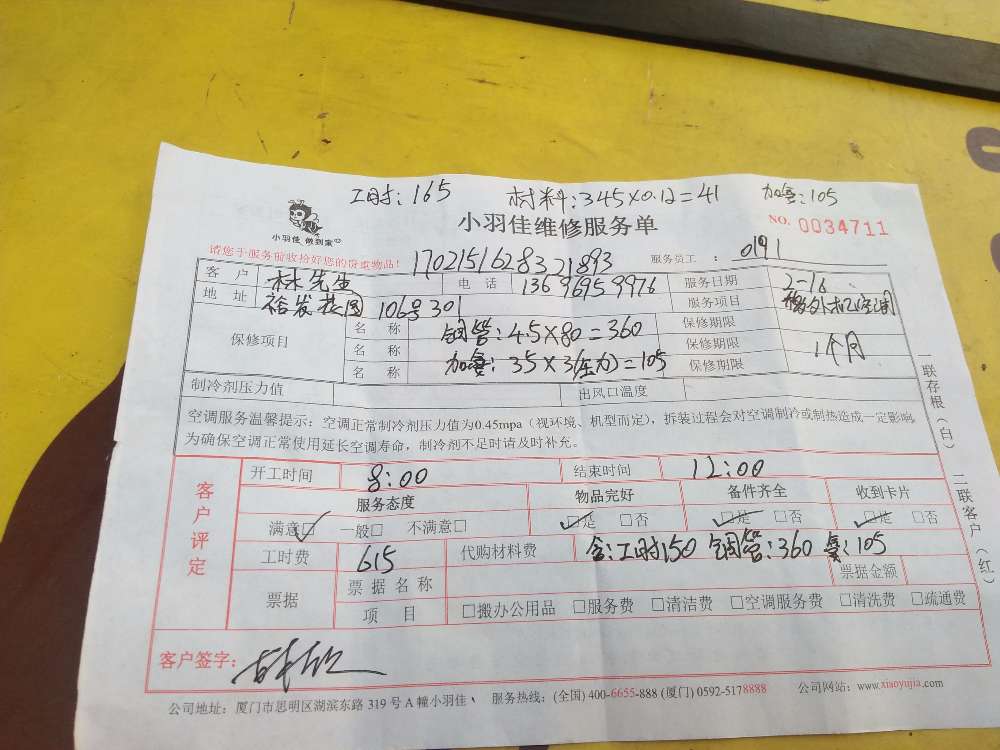 工时: 165 材料: 345×0.12=41 加氟: 105
小羽佳 做到家
小羽佳维修服务单
NO. 0034711
请您于服务前收拾好您的贵重物品!
17021516283 21893
服务员工 : 0191
客 户 林先生 电 话 13696959976 服务日期 2-16
地 址 裕发花园 106号301 服务项目 移外机空调
保修项目 名 称 铜管: 4.5×80=360 保修期限
名 称 加氟: 35×3(压力)=105 保修期限 1个月
名 称 保修期限
制冷剂压力值 出风口温度
空调服务温馨提示: 空调正常制冷剂压力值为0.45mpa（视环境、机型而定），拆装过程会对空调制冷或制热造成一定影响,
为确保空调正常使用延长空调寿命，制冷剂不足时请及时补充。
一联存根（白） 二联客户（红）
客户评定
开工时间 8:00 结束时间 12:00
服务态度 物品完好 备件齐全 收到卡片
满意☑ 一般□ 不满意□ ☑是 □否 ☑是 □否 ☑是 □否
工时费 615 代购材料费 含:工时150 铜管:360 氟:105
票据 票据名称 票据金额
项 目 □搬办公用品 □服务费 □清洁费 □空调服务费 □清洗费 □疏通费
客户签字:
公司地址: 厦门市思明区湖滨东路 319 号 A 幢小羽佳、 服务热线: (全国) 400-6655-888 (厦门) 0592-5178888 公司网站: www.xiaoyujia.com